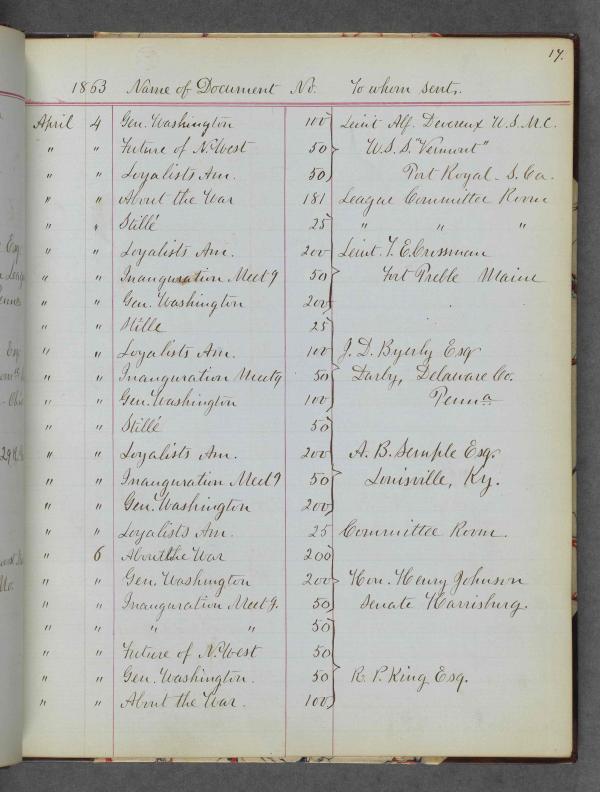 17.
1863 Name of Document No. To whom sent.
April 4 Gen. Washington 100 Lieut Alf. Devereux U.S.M.C.
" " Future of N. West 50 U.S.S. "Vermont"
" " Loyalists Am. 50 Port Royal. S. Ca.
" " About the War 181 League Committee Room
" " Stillé 25 " " "
" " Loyalists Am. 200 Lieut. T. E. Crossman
" " Inauguration Meetg 50 Fort Preble Maine
" " Gen. Washington 200
" " Stille 25
" " Loyalists Am. 100 J. D. Byerly Esq
" " Inauguration Meetg 50 Darby, Delaware Co.
" " Gen. Washington 100 Penna
" " Stillé 50
" " Loyalists Am. 200 A. B. Semple Esq.
" " Inauguration Meetg 50 Louisville, Ky.
" " Gen. Washington 200
" " Loyalists Am. 25 Committee Room.
" 6 About the War 200
" " Gen. Washington 200 Hon. Henry Johnson
" " Inauguration Meetg. 50 Senate Harrisburg.
" " " " 50
" " Future of N. West 50
" " Gen. Washington. 50 R. P. King Esq.
" " About the War. 100